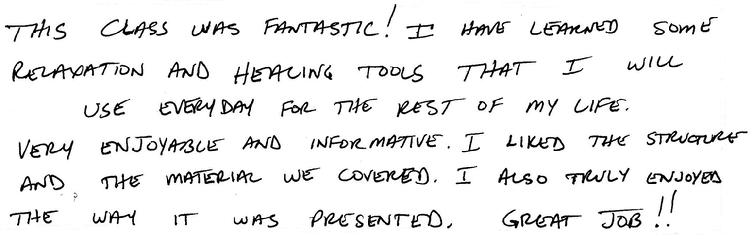 THIS CLASS WAS FANTASTIC! I HAVE LEARNED SOME
RELAXATION AND HEALING TOOLS THAT I WILL
USE EVERYDAY FOR THE REST OF MY LIFE.
VERY ENJOYABLE AND INFORMATIVE. I LIKED THE STRUCTURE
AND THE MATERIAL WE COVERED. I ALSO TRULY ENJOYED
THE WAY IT WAS PRESENTED. GREAT JOB!!